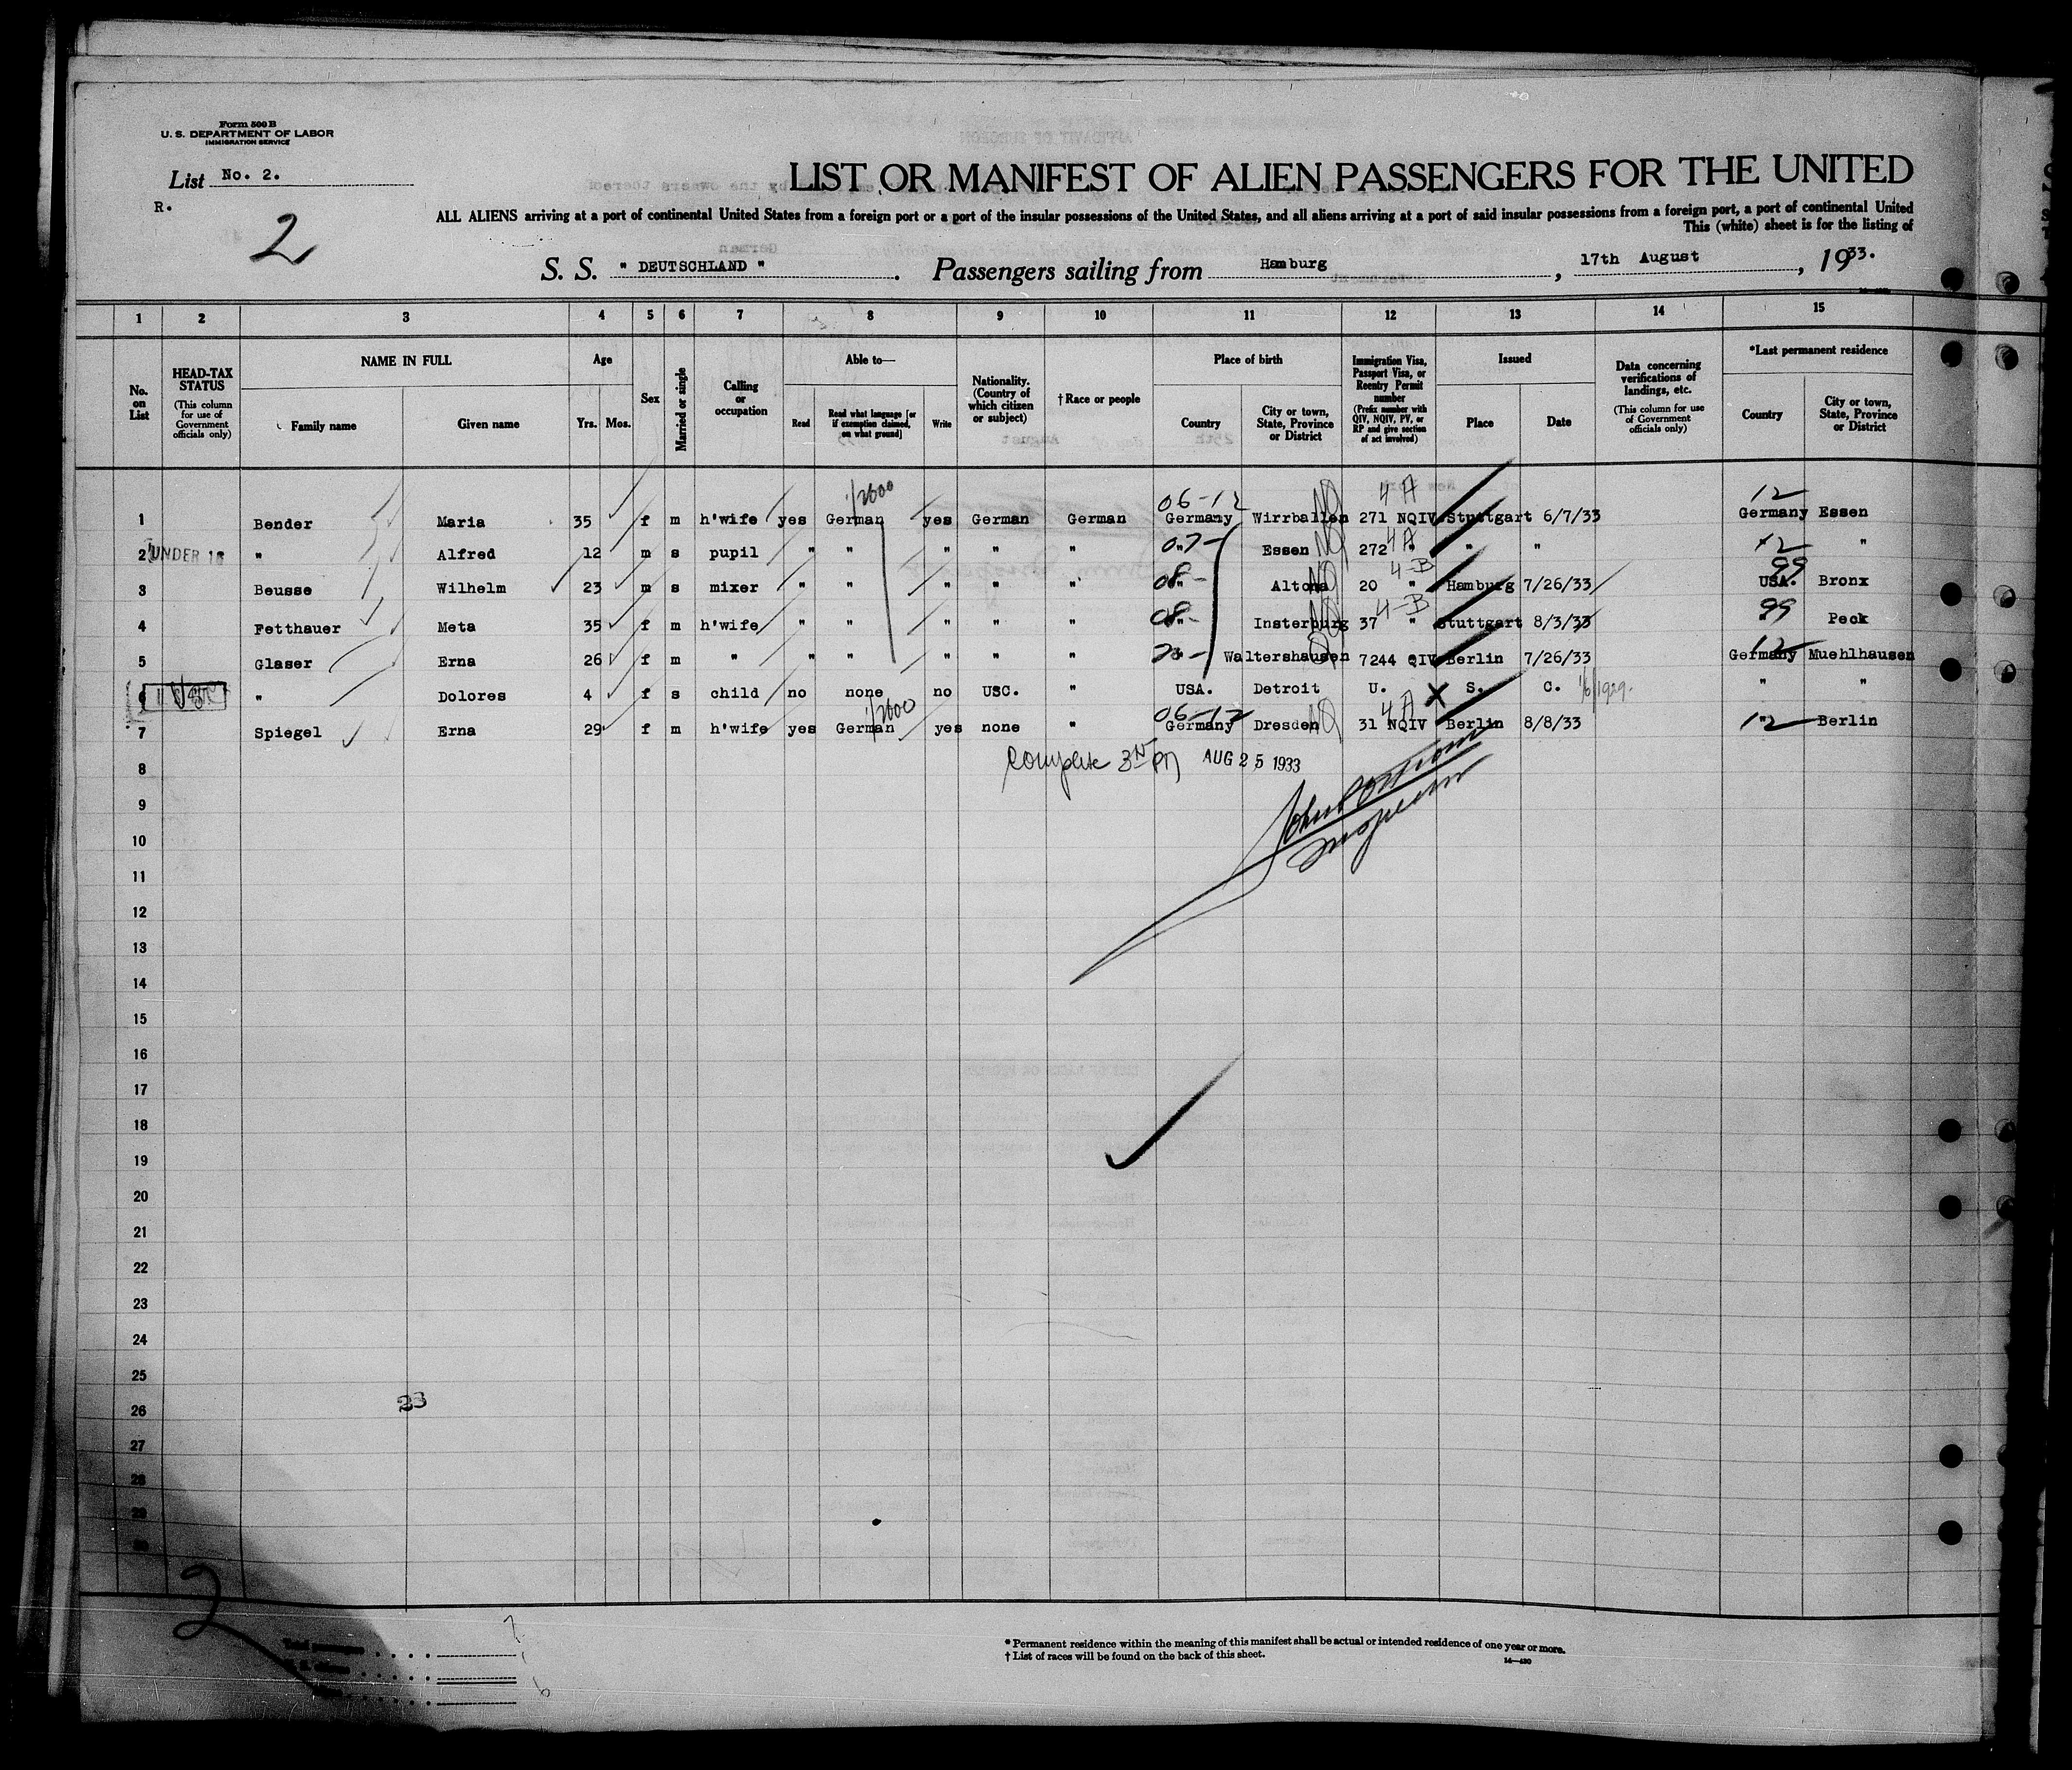 Form 500 B
U. S. DEPARTMENT OF LABOR
IMMIGRATION SERVICE
List No. 2.
R.
2
LIST OR MANIFEST OF ALIEN PASSENGERS FOR THE UNITED
ALL ALIENS arriving at a port of continental United States from a foreign port or a port of the insular possessions of the United States, and all aliens arriving at a port of said insular possessions from a foreign port, a port of continental United
This (white) sheet is for the listing of
S. S. " DEUTSCHLAND " . Passengers sailing from Hamburg , 17th August , 1933.
1 2 3 4 5 6 7 8 9 10 11 12 13 14 15
No. on List
HEAD-TAX STATUS (This column for use of Government officials only)
NAME IN FULL
Family name Given name
Age
Yrs. Mos.
Sex
Married or single
Calling or occupation
Able to—
Read Read what language [or if exemption claimed, on what ground] Write
Nationality. (Country of which citizen or subject)
† Race or people
Place of birth
Country City or town, State, Province or District
Immigration Visa, Passport Visa, or Reentry Permit number (Prefix number with QIV, NQIV, PV, or RP and give section of act involved)
Issued
Place Date
Data concerning verifications of landings, etc. (This column for use of Government officials only)
*Last permanent residence
Country City or town, State, Province or District
1/2600 06-12 4 A 12
1 Bender Maria 35 f m h'wife yes German yes German German Germany Wirrballen 271 NQIV Stuttgart 6/7/33 Germany Essen
07- 4 A 12
2 UNDER 16 " Alfred 12 m s pupil " " " " " " Essen 272 " " " "
08- 4-B 99
3 Beusse Wilhelm 23 m s mixer " " " " " " Altona 20 " Hamburg 7/26/33 USA. Bronx
08- 4-B 99
4 Fetthauer Meta 35 f m h'wife " " " " " " Insterburg 37 " Stuttgart 8/3/33 " Peck
12
5 Glaser Erna 26 f m " " " " " " " Waltershausen 7244 QIV Berlin 7/26/33 Germany Muehlhausen
6 " Dolores 4 f s child no none no USC. " USA. Detroit U. S. C. 1/6/1929. " "
1/2600 06-12 4 A 12
7 Spiegel Erna 29 f m h'wife yes German yes none " Germany Dresden 31 NQIV Berlin 8/8/33 " Berlin
Complete AUG 25 1933
8
9
10
Inspector
11
12
13
14
15
16
17
18
19
20
21
22
23
24
25
26
23
27
28
29
30
2
* Permanent residence within the meaning of this manifest shall be actual or intended residence of one year or more.
† List of races will be found on the back of this sheet.
14—430